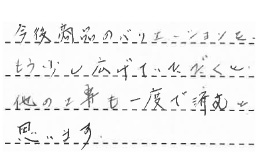 今後商品のバリエーションを、
もう少し広げていただくと
他の工事も一度で済むと
思います。